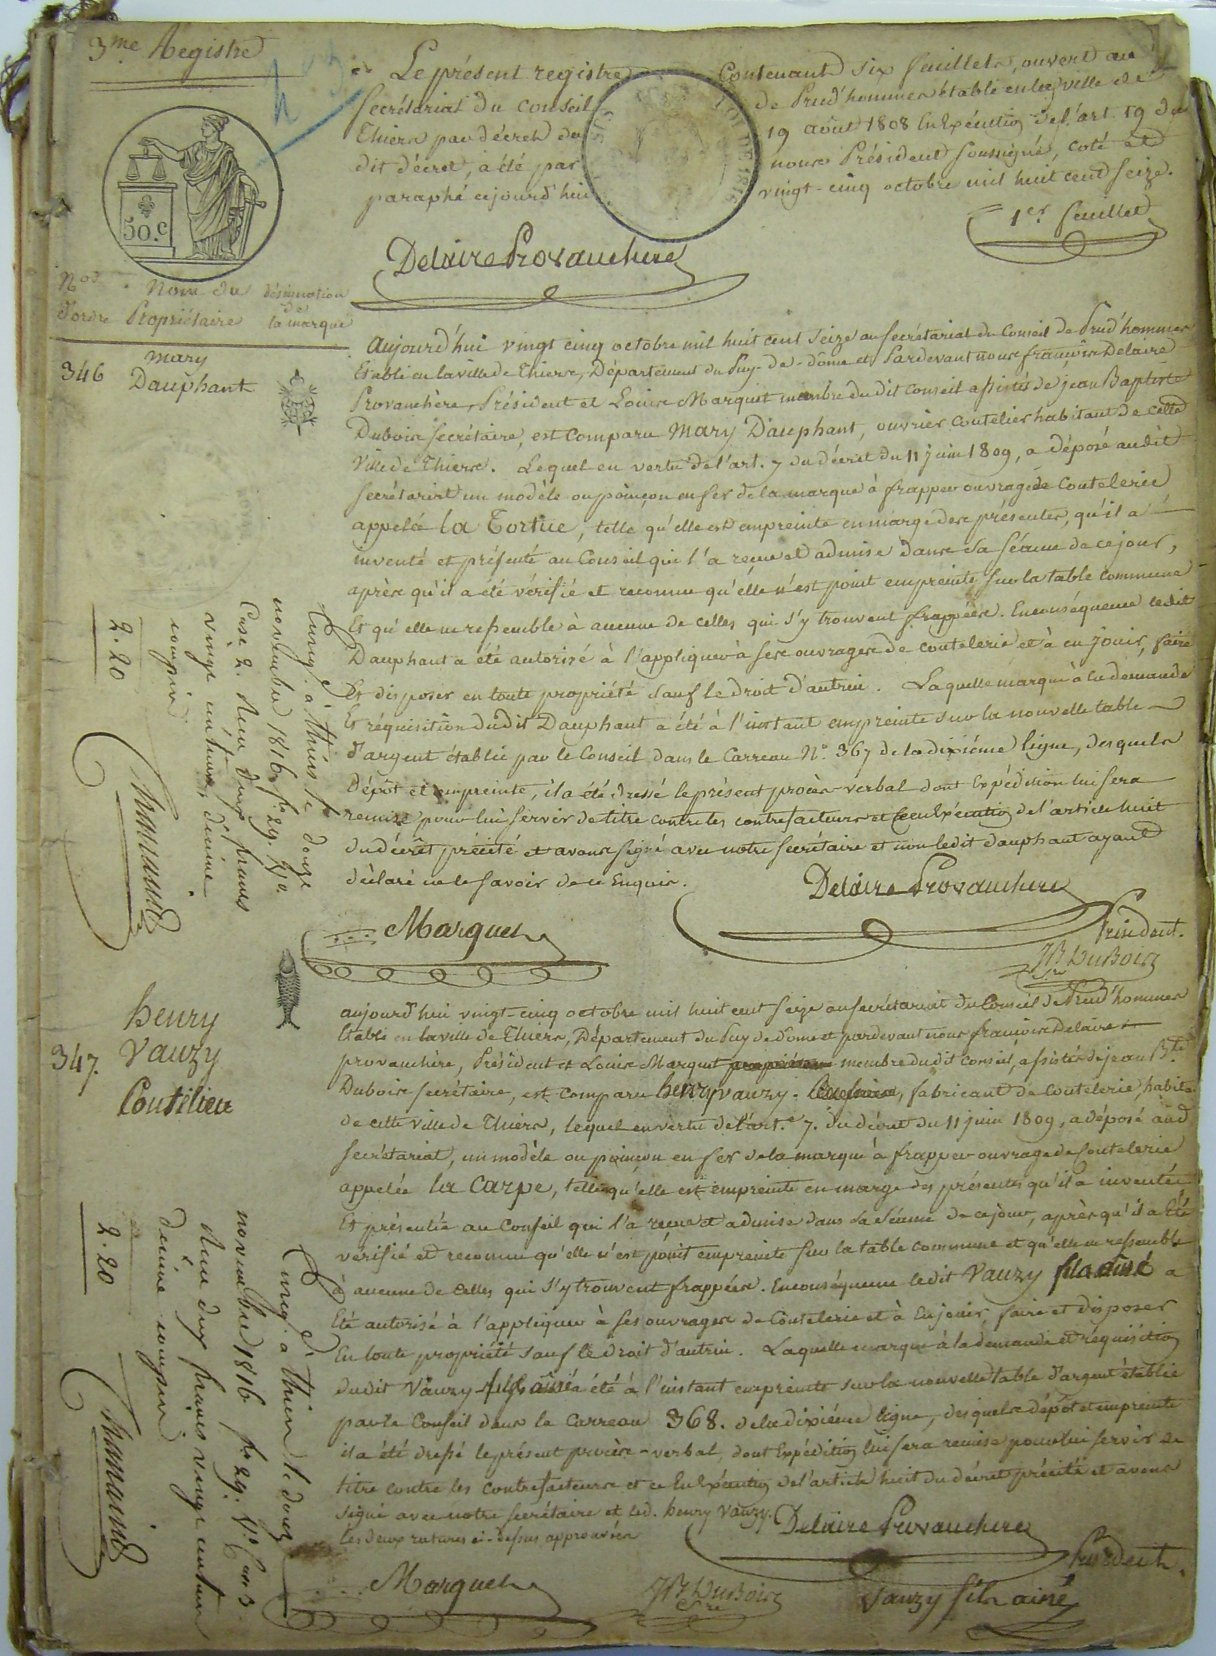 3me Registre
Le présent registre Contenant six feuillets, ouvert au
secrétariat du conseil de Prud'hommes établi en la ville de
Thiers par décret du 19 août 1808 En Exécution de l'art. 19 du
dit décret, a été par nous Président soussigné, coté et
paraphé cejourd'hui vingt-cinq octobre mil huit cent seize.
50.c
1er feuillet
Delaire Provanchere
Nos d'ordre
Nom du Propriétaire
désignation de la marque
346
mary
Dauphant
Aujourd'hui vingt cinq octobre mil huit cent seize au secrétariat du Conseil de Prud'hommes
Etabli en la ville de Thiers, Département du Puy-de-dôme et Pardevant nous françois Delaire
Provanchère, Président et Louis Marquet membre du dit conseil assistés de jean Baptiste
Dubois secrétaire, est Comparu Mary Dauphant, ouvrier coutelier habitant de cette
Ville de Thiers. Lequel en vertu de l'art. 7 du décret du 11 juin 1809, a déposé audit
secrétariat un modèle ou poinçon en fer de la marque à frapper ouvrages de Coutelerie
appelée la Tortue, telle qu'elle est empreinte en marge des présentes, qu'il a
inventé et présenté au Conseil qui l'a reçue et admise dans sa séance de ce jour,
après qu'il a été vérifié et reconnu qu'elle n'est point empreinte sur la table commune
Et qu'elle ne ressemble à aucune de celles qui s'y trouvent frappées. En conséquence ledit
Dauphant a été autorisé à l'appliquer à ses ouvrages de coutelerie et à en jouir, faire
Et disposer en toute propriété sauf le droit d'autrui. Laquelle marque à la demande
Et réquisition dudit Dauphant a été à l'instant empreinte sur la nouvelle table
d'argent établie par le Conseil dans le Carreau No. 367 de la dixiéme ligne, desquels
Dépot et empreinte, il a été dressé le présent procès-verbal dont Expédition lui sera
remise pour lui servir de titre contre les contrefacteurs et ce en Exécution de l'article huit
du décret précité et avons signé avec notre secrétaire et non ledit dauphant ayant
déclaré ne le savoir de ce Enquis.
Delaire Provanchere
Président.
Marquet
JB Dubois
Sre
Enreg. à Thiers le douze
novembre 1816 fo. 29. Vo
Case 2. Reçu deux francs
vingt centimes, dixième
compris
2.20
347.
henry
Vauzy
Coutilier
aujourd'hui vingt-cinq octobre mil huit cent seize au secrétariat du Conseil de Prud'hommes
Etabli en la ville de Thiers, Département du Puy de dome et pardevant nous françois Delaire
provanchère, Président et Louis Marquet membre dudit conseil, assistés de jean Bte
Dubois secrétaire, est comparu henry vauzy, fabricant de Coutelerie, habitant
de cette ville de Thiers, lequel en vertu de l'art. 7. du décret du 11 juin 1809, a déposé aud
secrétariat, un modèle ou poinçon en fer de la marque à frapper ouvrages de Coutelerie
appelée la Carpe, telle qu'elle est empreinte en marge des présentes qu'il a inventée
Et présentée au Conseil qui l'a reçue et admise dans sa séance de ce jour, après qu'il a été
vérifié et reconnu qu'elle n'est point empreinte sur la table commune et qu'elle ne ressemble
à aucune de celles qui s'y trouvent frappées. En conséquence ledit Vauzy fils ainé a
Eté autorisé à l'appliquer à ses ouvrages de Coutelerie et à En jouir, faire et disposer
En toute propriété sauf le droit d'autrui. Laquelle marque à la demande et réquisition
dudit Vauzy fils ainé a été à l'instant empreinte sur la nouvelle table d'argent établie
par le Conseil dans le Carreau 368. de la dixiéme ligne, desquels dépôt et empreinte
il a été dressé le présent procès-verbal, dont Expédition lui sera remise pour lui servir de
titre contre les contrefacteurs et ce En Exécution de l'article huit du décret précité et avons
signé avec notre secrétaire et led. henry Vauzy.
Les deux ratures ci-dessus approuvées
Delaire Provanchere
Président.
Marquet
JB Dubois
Sre
Vauzy fils ainé
Enreg. à Thiers le douze
novembre 1816 fo. 29. Vo. Case 3.
Reçu deux francs vingt centimes
dixième compris
2.20